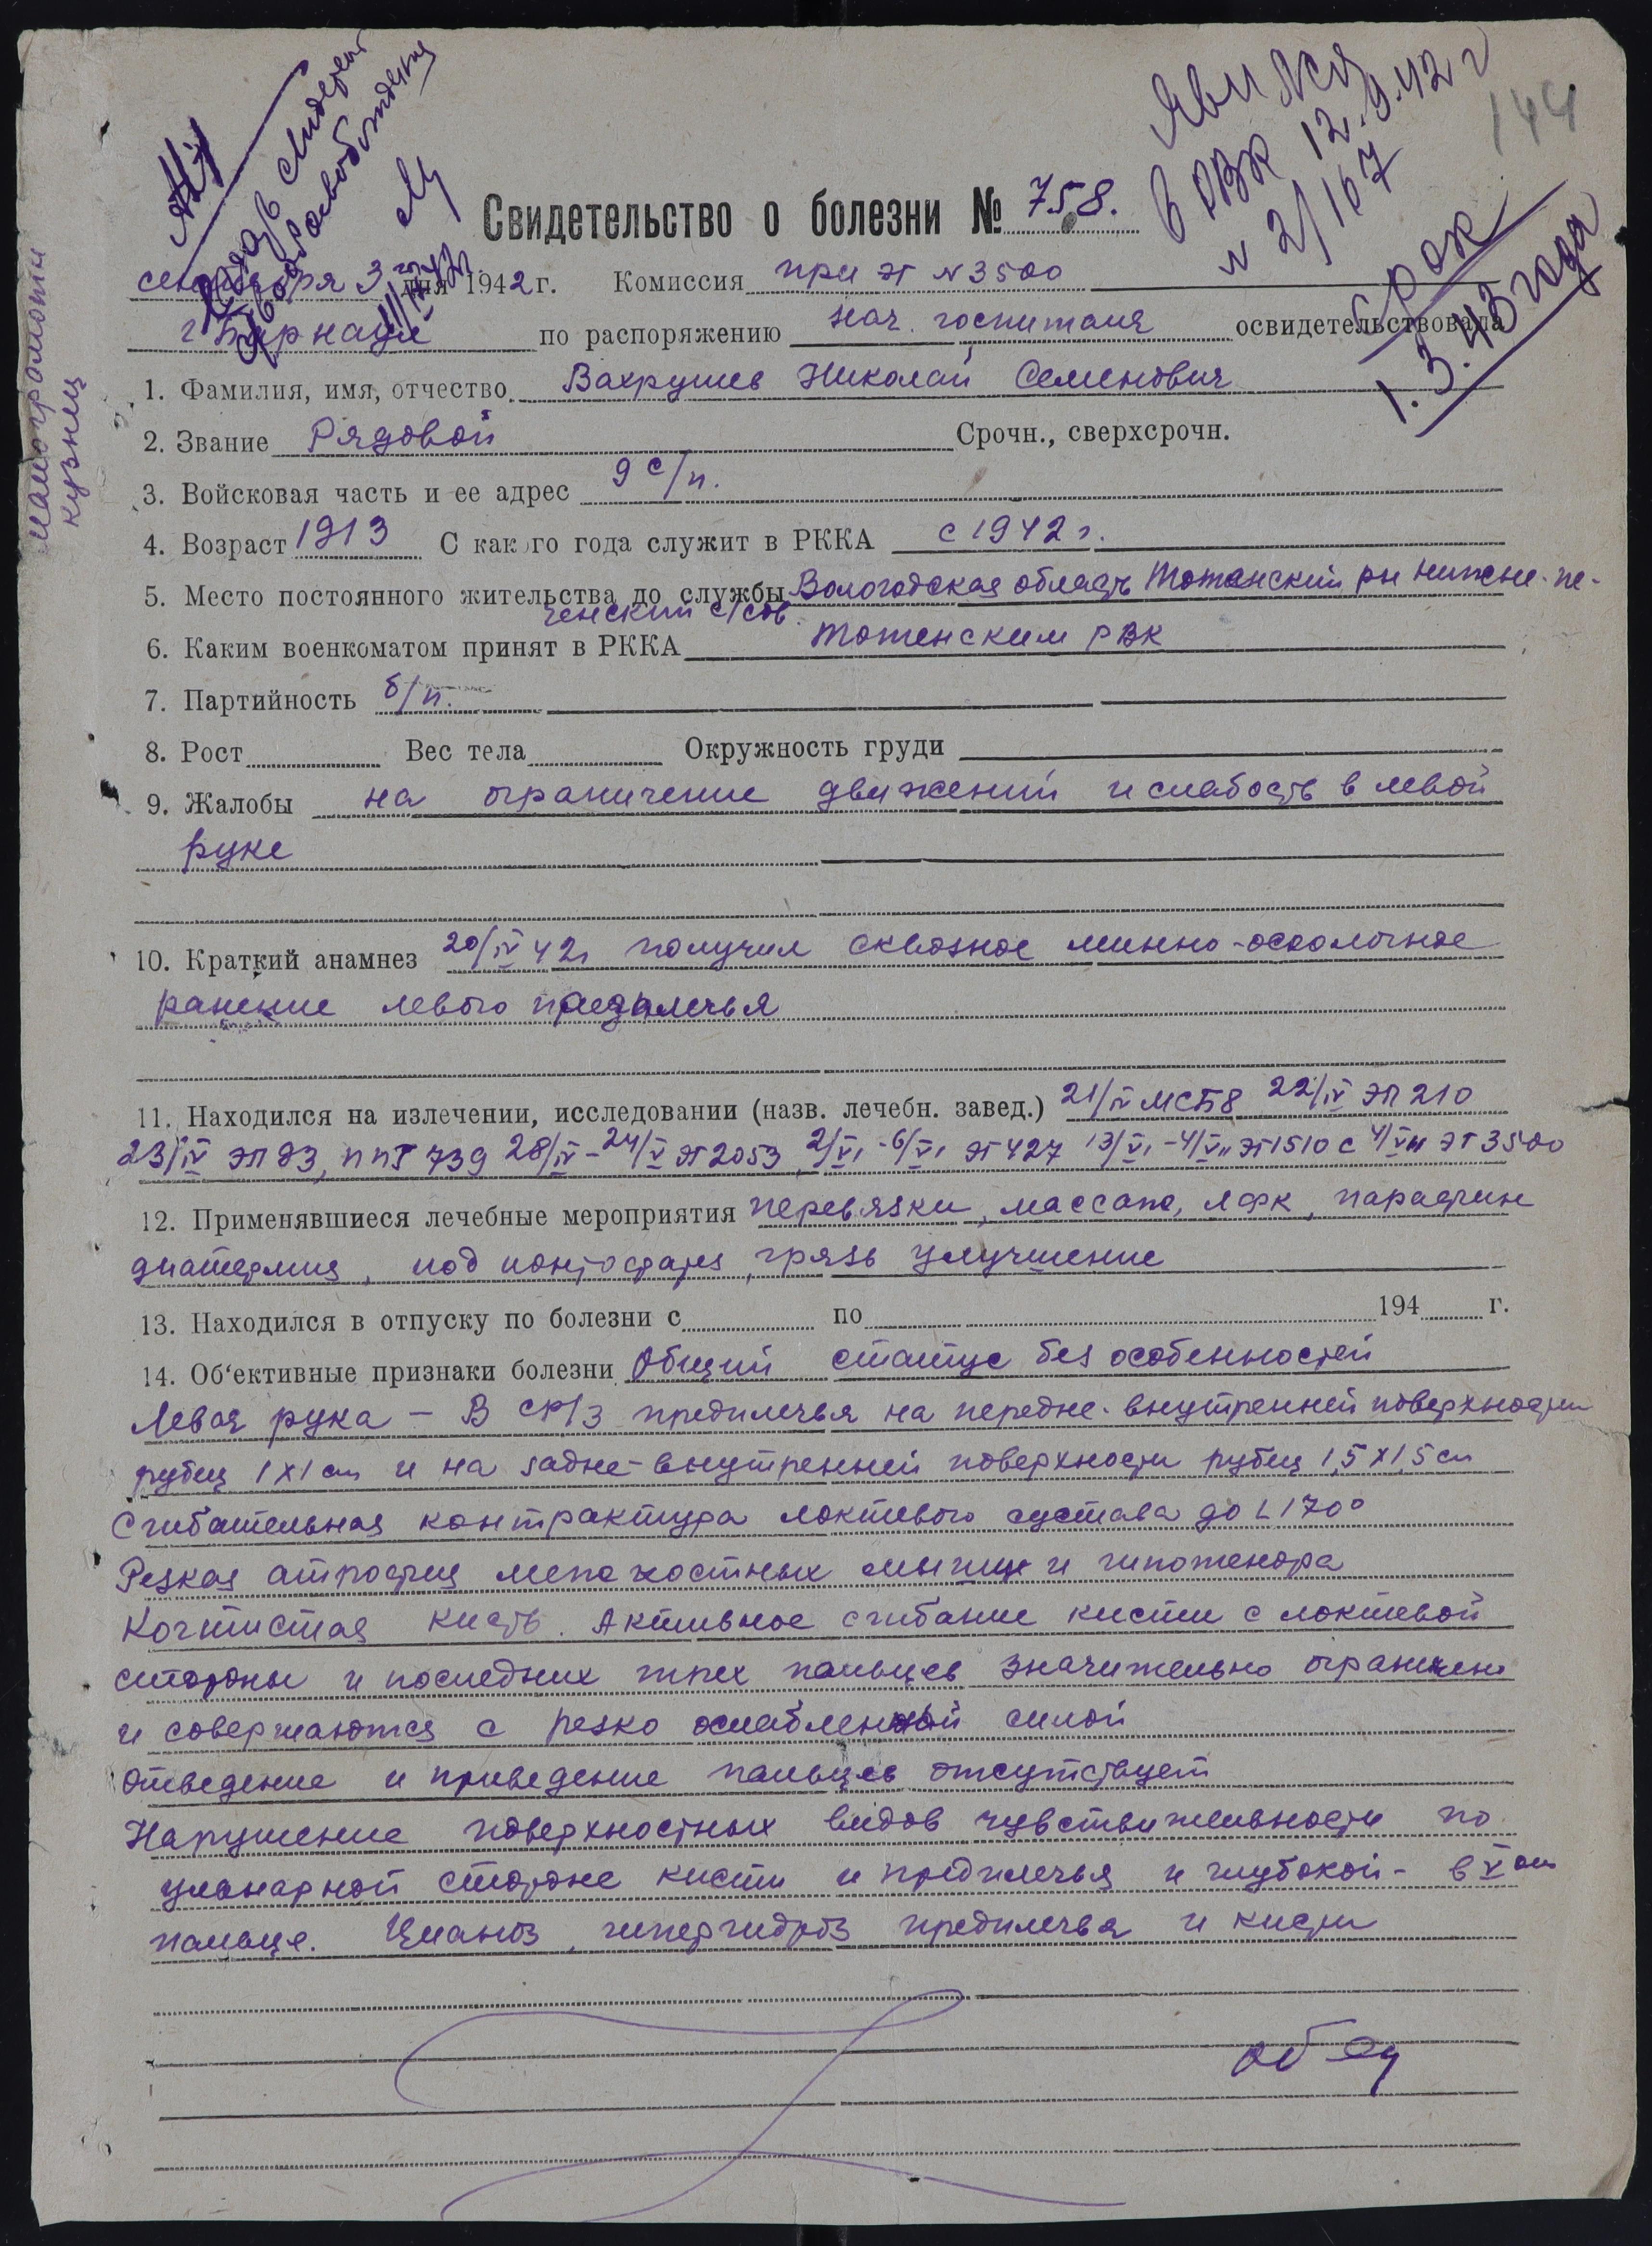 Явился
в РВК 12.9.42 г
н 2/167
144
срок
1.3.43 года
Свидетельство о болезни № 758.
сентября 3 дня 1942 г. Комиссия при ЭГ N 3500
г Барнаул по распоряжению нач. госпиталя освидетельствовала
1. Фамилия, имя, отчество Вахрушев Николай Семенович
2. Звание Рядовой Срочн., сверхсрочн.
3. Войсковая часть и ее адрес 9 с/п.
4. Возраст 1913 С какого года служит в РККА с 1942 г.
5. Место постоянного жительства до службы Вологодская область Тотенский рн Нижне-пе-
ченский с/сов.
6. Каким военкоматом принят в РККА Тотенским РВК
7. Партийность б/п.
8. Рост Вес тела Окружность груди
9. Жалобы на ограничение движений и слабость в левой
руке
10. Краткий анамнез 20/IV 42г получил сквозное минно-осколочное
ранение левого предплечья
11. Находился на излечении, исследовании (назв. лечебн. завед.) 21/IV МСБ8 22/IV ЭП 210
23/IV ЭП 93, ППГ 739 28/IV-24/V ЭГ 2053, 2/VI-6/VI ЭГ 427 13/VI-4/VII ЭГ 1510 с 4/VII ЭГ 3500
12. Применявшиеся лечебные мероприятия перевязки, массаж, ЛФК, парафин
диатермия, иод ионтофорез, грязь улучшение
13. Находился в отпуску по болезни с по 194 г.
14. Об‘ективные признаки болезни Общий статус без особенностей
Левая рука - В ср/3 предплечья на передне-внутренней поверхности
рубец 1х1 см и на задне-внутренней поверхности рубец 1,5х1,5 см
Сгибательная контрактура локтевого сустава до ∠170°
Резкая атрофия межкостных мышц и гипотенора
Когтистая кисть. Активное сгибание кисти с локтевой
стороны и последних трех пальцев значительно ограничен
и совершаются с резко ослабленной силой
Отведение и приведение пальцев отсутствует
Нарушение поверхностных видов чувствительности по
ульнарной стороне кисти и предплечья и глубокой - в V ом
пальце. Цианоз, гипергидроз предплечья и кисти
малограмотн
кузнец